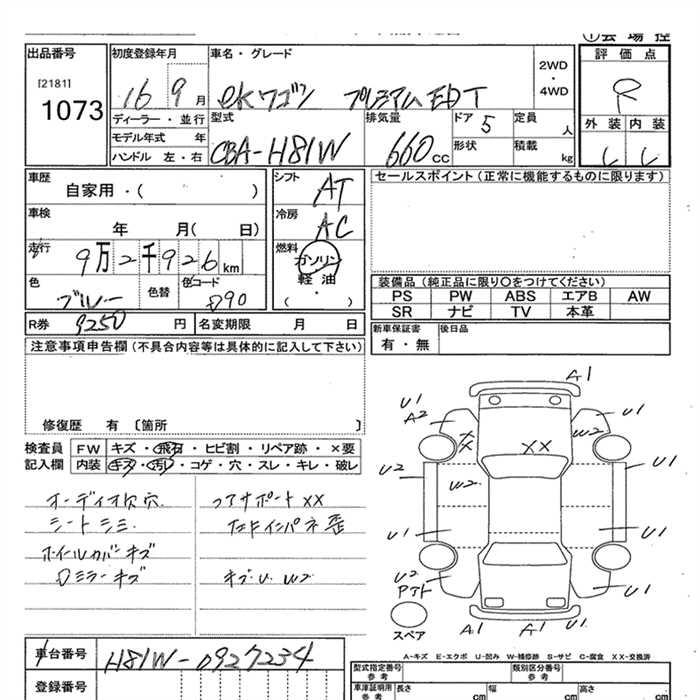 ①会場控
出品番号
[2181]
1073
初度登録年月
16 9 月
車名・グレード
eKワゴン プレミアムEDT
2WD
・
4WD
評価点
R
外装 内装
ディーラー・並行
モデル年式 年
ハンドル 左・右
型式
CBA-H81W
排気量
660 cc
ドア 5
形状
定員 人
積載 kg
車歴
自家用・( )
シフト
AT
車検
年 月( 日)
冷房
AC
走行
9万2千926 km
燃料
ガソリン
軽油
・
( )
色
ブルー
色替
色コード
D90
R券 9250 円
名変期限 月 日
セールスポイント(正常に機能するものに限ります)
装備品(純正品に限り○をつけてください)
PS PW ABS エアB AW
SR ナビ TV 本革
新車保証書
有・無
後日品
注意事項申告欄(不具合内容等は具体的に記入して下さい)
修復歴 有 〔箇所 〕
検査員
記入欄
FW キズ・飛石・ヒビ割・リペア跡・×要
内装 キズ・汚レ・コゲ・穴・スレ・キレ・破レ
オーディオ欠穴
シートシミ
ホイールカバーキズ
Dミラーキズ
コアサポートXX
A1
U1
A2
XX
XX
W2
U1
U2
W2
U1
U1
U1
U2
U1
A1
A1
U1
スペア
A-キズ E-エクボ U-凹み W-補修跡 S-サビ C-腐食 XX-交換済
車台番号
H81W-0927234
登録番号
型式指定番号
参考
類別区分番号
参考
車庫証明用
参考
長さ cm
幅 cm
高さ cm